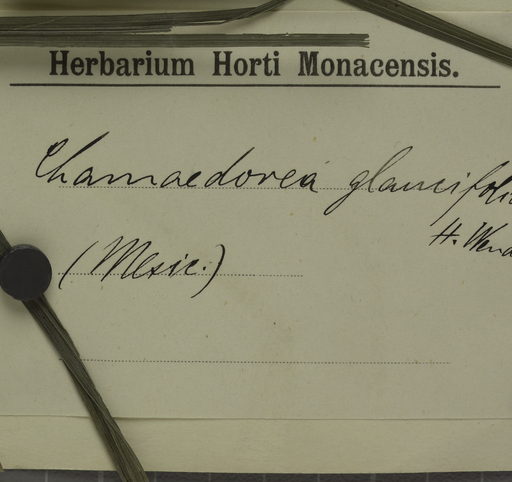 Herbarium Horti Monacensis.
Chamaedorea glaucifolia
H. Wend
(Mexic.)